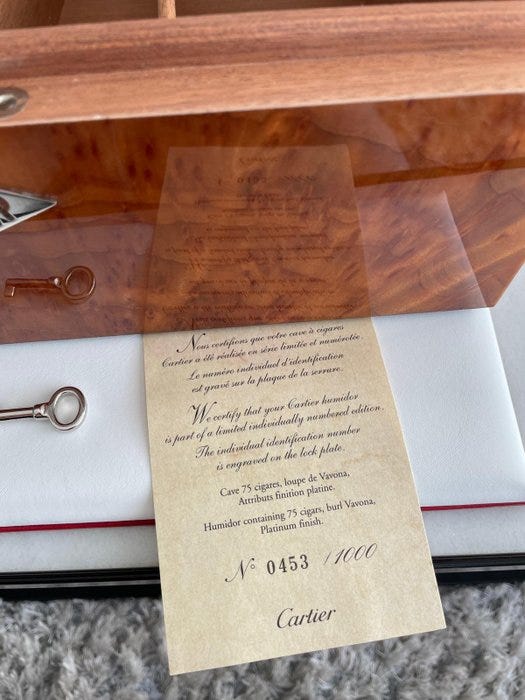 Nous certifions que votre cave à cigares
Cartier a été réalisée en série limitée et numérotée.
Le numéro individuel d'identification
est gravé sur la plaque de la serrure.
We certify that your Cartier humidor
is part of a limited individually numbered edition.
The individual identification number
is engraved on the lock plate.
Cave 75 cigares, loupe de Vavona,
Attributs finition platine.
Humidor containing 75 cigars, burl Vavona,
Platinum finish.
N° 0453 / 1000
Cartier